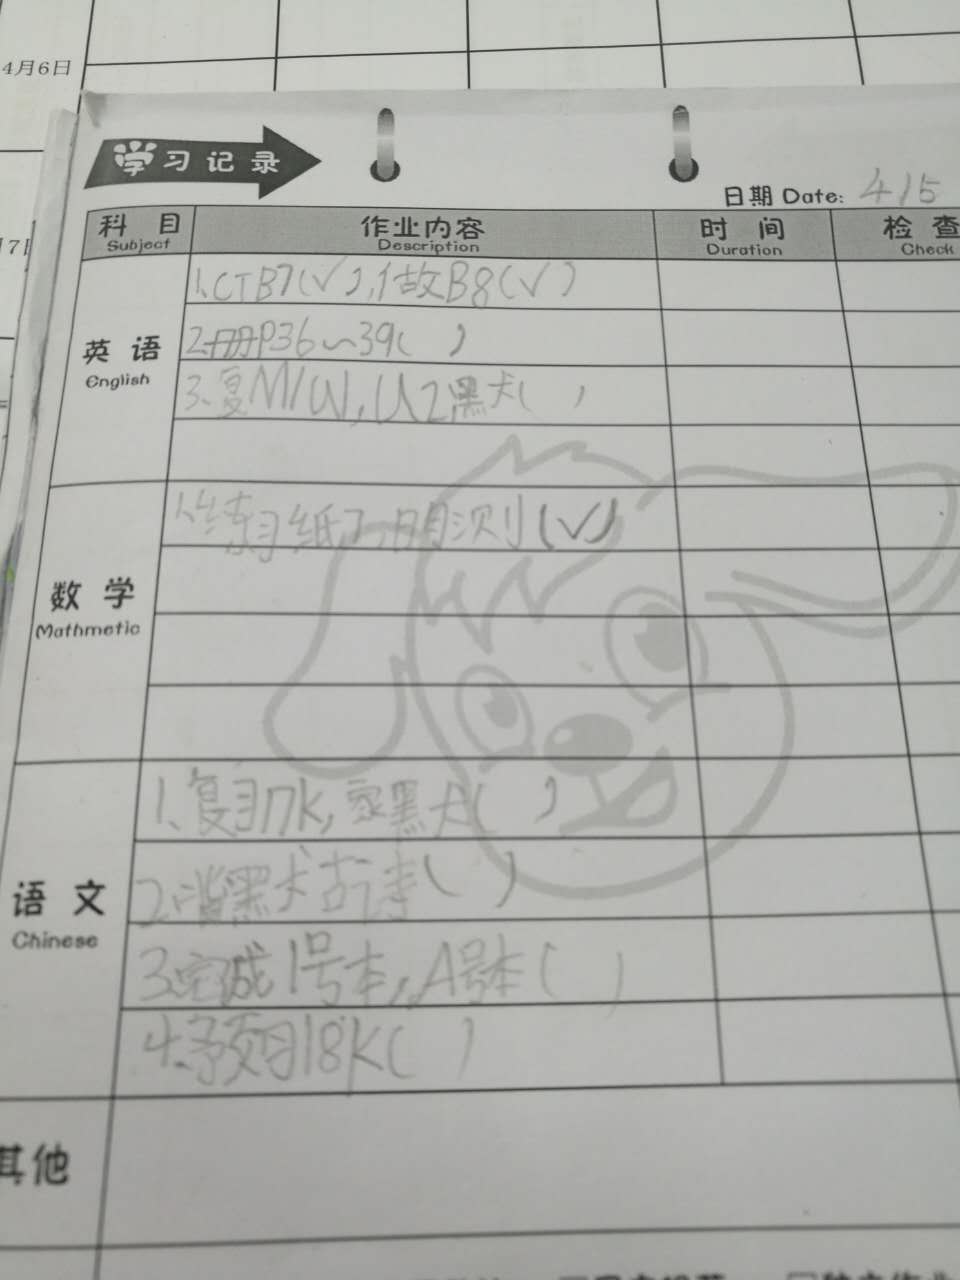 4月6日
学习记录
日期 Date: 4/5
科目 作业内容 时间 检查
Subject Description Duration Check
1.CTB7(√),做B8(√)
英语
English
2.册P36~39( )
3.复M1W,U2黑犬( )
数学
Mathmetic
1.练习纸了,明测(√)
语文
Chinese
1.复习17K,家黑犬( )
2.背黑犬古诗( )
3.完成1号本,A号本( )
4.预习18K( )
其他